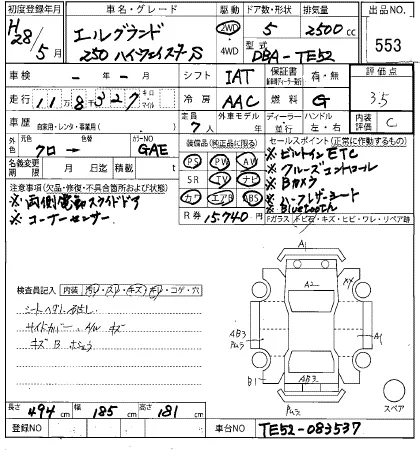 初度登録年月 車名・グレード 駆動 ドア数・形状 排気量 出品NO.
H28/5月 エルグランド 2WD 5 2500cc 553
250 ハイウェイスターS 4WD 型式 DBA-TE52
車検 - - シフト IAT 保証書 有・無 評価点
走行 11万8千327 キロ マイル 冷房 AAC 燃料 G 3.5
車歴 自家用・レンタ・事業用( ) 定員 7人 外車モデル 年 ディーラー 並行 ハンドル 左・右 内装 C
外色 元色 クロ→ カラーNO GAE 装備品(純正品に限る) セールスポイント(正常に作動する物)
名義変更期限 月 日迄 積載 t PS PW AW ※ビルトインETC
注意事項(欠品・修復・不具合箇所および状態) SR TV ナビ ※クルーズコントロール
※両側電動スライドドア カワ エアB ABS ※Bカメラ
※コーナーセンサー R券 15740円 ※ハーフレザーシート
※Bluetooth
Fガラス トビ石・キズ・ヒビ・ワレ・リペア跡
A1
検査員記入 内装 汚レ・スレ・キズ・キレ・コゲ・穴 A2
シートヘタリ
サイドカバー A/W キズ AB3 A1
キズB
B1 AB3
長さ 494cm 幅 185cm 高さ 181cm スペア
登録NO 車台NO TE52-083537